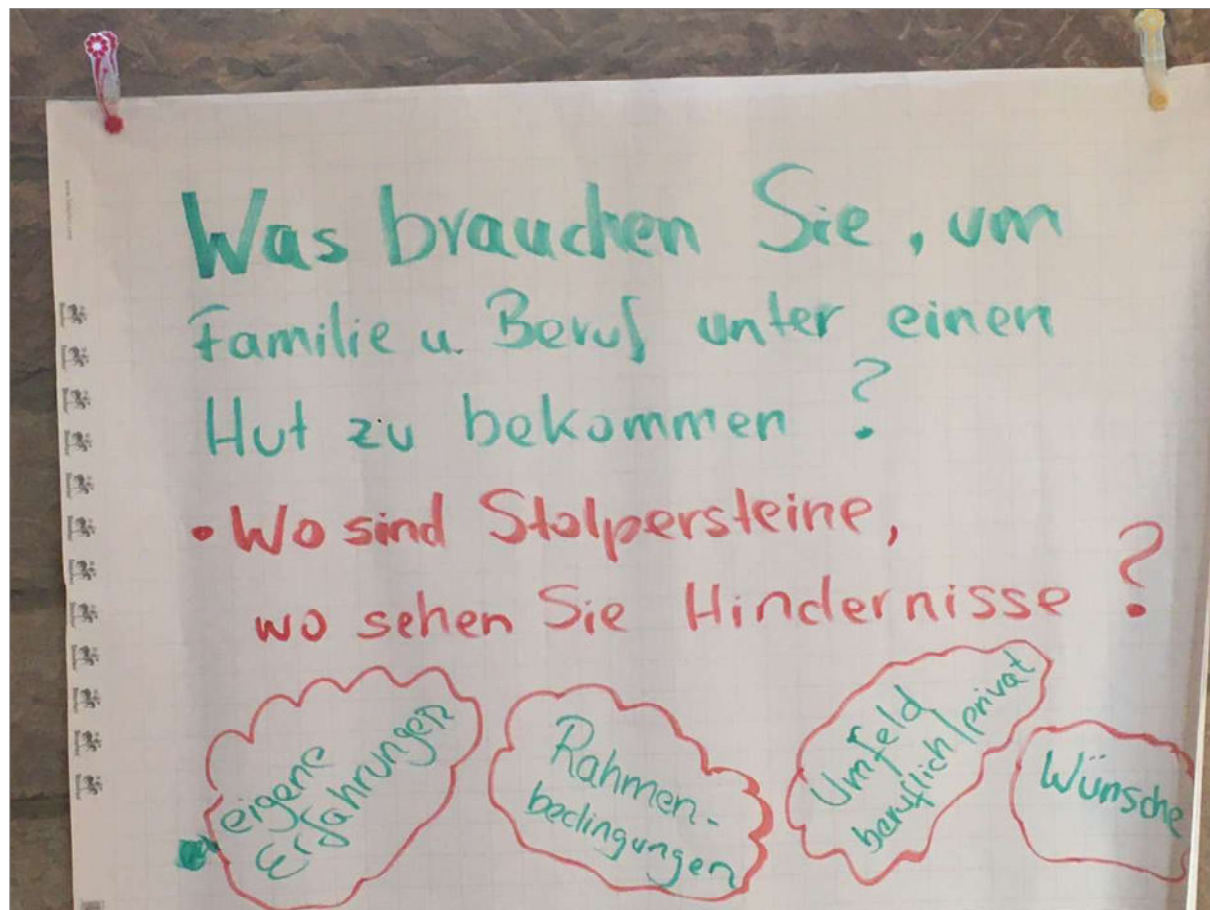 Was brauchen Sie, um
Familie u. Beruf unter einen
Hut zu bekommen?
• Wo sind Stolpersteine,
wo sehen Sie Hindernisse?
eigene
Erfahrungen
Rahmen-
bedingungen
Umfeld
beruflich/privat
Wünsche